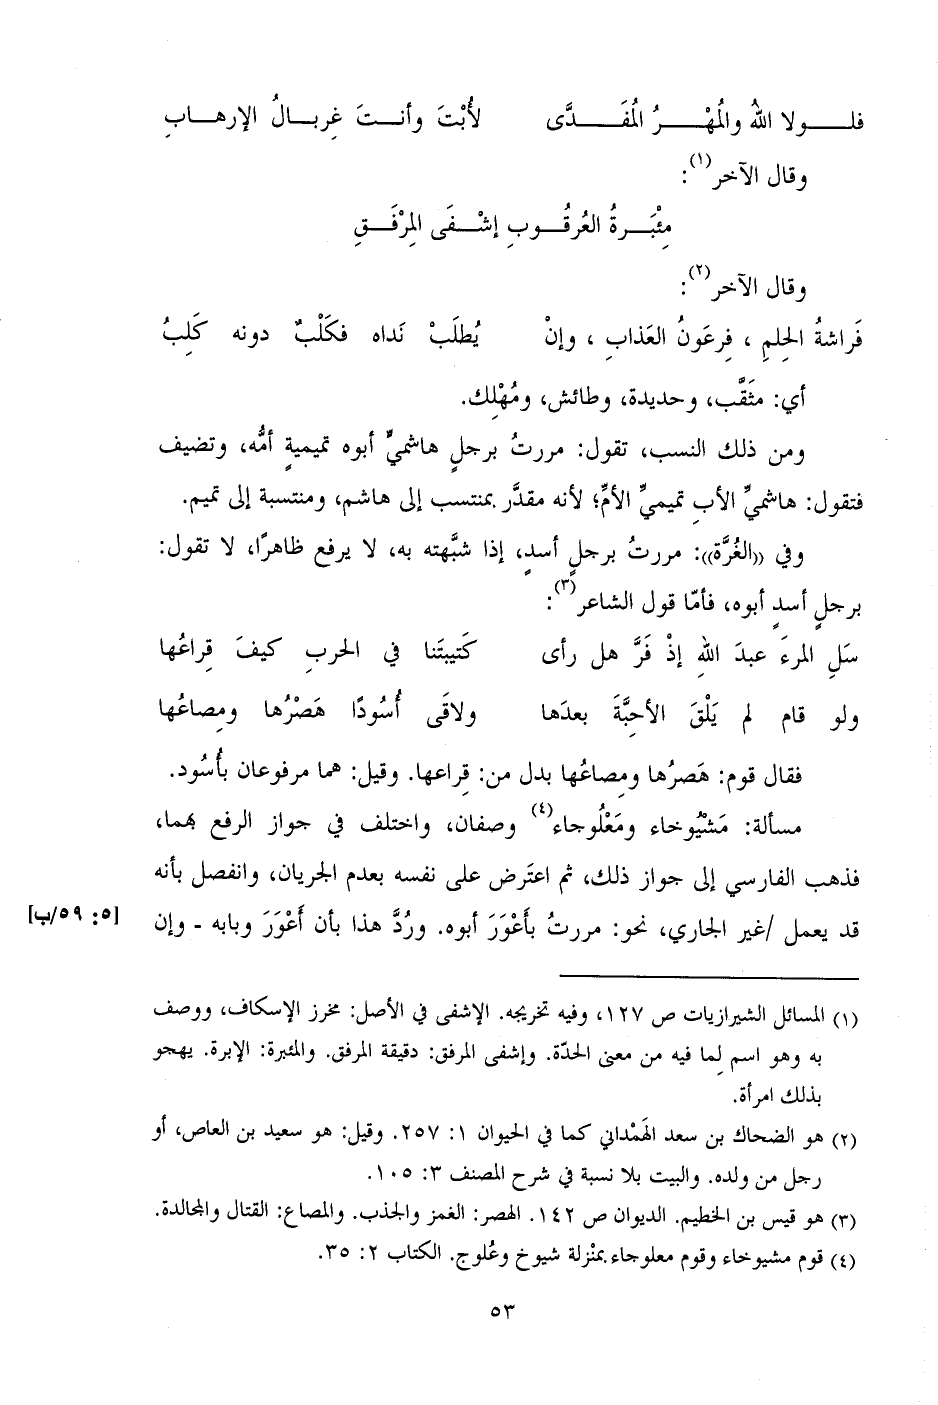 فلـــولا اللهُ والمُهْـــرُ المُفَـــدَّى لأُبْتَ وأنـــتَ غِربـــالُ الإرهـــابِ
وقال الآخر(١):
مِئْبَـــرةُ العُرقُـــوبِ إشْـــفَى المِرْفَـــقِ
وقال الآخر(٢):
فَراشةُ الحِلمِ ، فِرعَونُ العَذابِ ، وإنْ يُطلَبْ نَداه فكَلْبٌ دونه كَلِبُ
أي: مثَقَّب، وحديدة، وطائش، ومُهْلِك.
ومن ذلك النسب، تقول: مررتُ برجلٍ هاشميٍّ أبوه تميميةٍ أمُّه، وتضيف
فتقول: هاشميِّ الأبِ تميميِّ الأمِّ؛ لأنه مقدَّر بمنتسب إلى هاشم، ومنتسبة إلى تميم.
وفي «الغُرَّة»: مررتُ برجلٍ أسدٍ، إذا شبَّهته به، لا يرفع ظاهرًا، لا تقول:
برجلٍ أسدٍ أبوه، فأمّا قول الشاعر(٣):
سَلِ المرءَ عبدَ اللهِ إذْ فَرَّ هل رأى كَتيبتَنا في الحربِ كيفَ قِراعُها
ولو قام لم يَلْقَ الأحبَّةَ بعدَها ولاقَى أُسُودًا هَصْرُها ومِصاعُها
فقال قوم: هَصرُها ومِصاعُها بدل من: قِراعها. وقيل: هما مرفوعان بأُسُود.
مسألة: مَشْيُوخاء ومَعْلُوجاء(٤) وصفان، واختلف في جواز الرفع بهما،
فذهب الفارسي إلى جواز ذلك، ثم اعتَرض على نفسه بعدم الجريان، وانفصل بأنه
قد يعمل /غير الجاري، نحو: مررتُ بأَعْوَرَ أبوه. ورُدَّ هذا بأن أَعْوَرَ وبابه ـ وإن [٥: ٥٩/ب]
(١) المسائل الشيرازيات ص ١٢٧، وفيه تخريجه. الإشفى في الأصل: مخرز الإسكاف، ووصف
به وهو اسم لِما فيه من معنى الحدّة. وإشفى المرفق: دقيقة المرفق. والمئبرة: الإبرة. يهجو
بذلك امرأة.
(٢) هو الضحاك بن سعد الهَمْداني كما في الحيوان ١: ٢٥٧. وقيل: هو سعيد بن العاص، أو
رجل من ولده. والبيت بلا نسبة في شرح المصنف ٣: ١٠٥.
(٣) هو قيس بن الخطيم. الديوان ص ١٤٢. الهصر: الغمز والجذب. والمصاع: القتال والمجالدة.
(٤) قوم مشيوخاء وقوم معلوجاء بمنْزلة شيوخ وعُلوج. الكتاب ٢: ٣٥.
٥٣